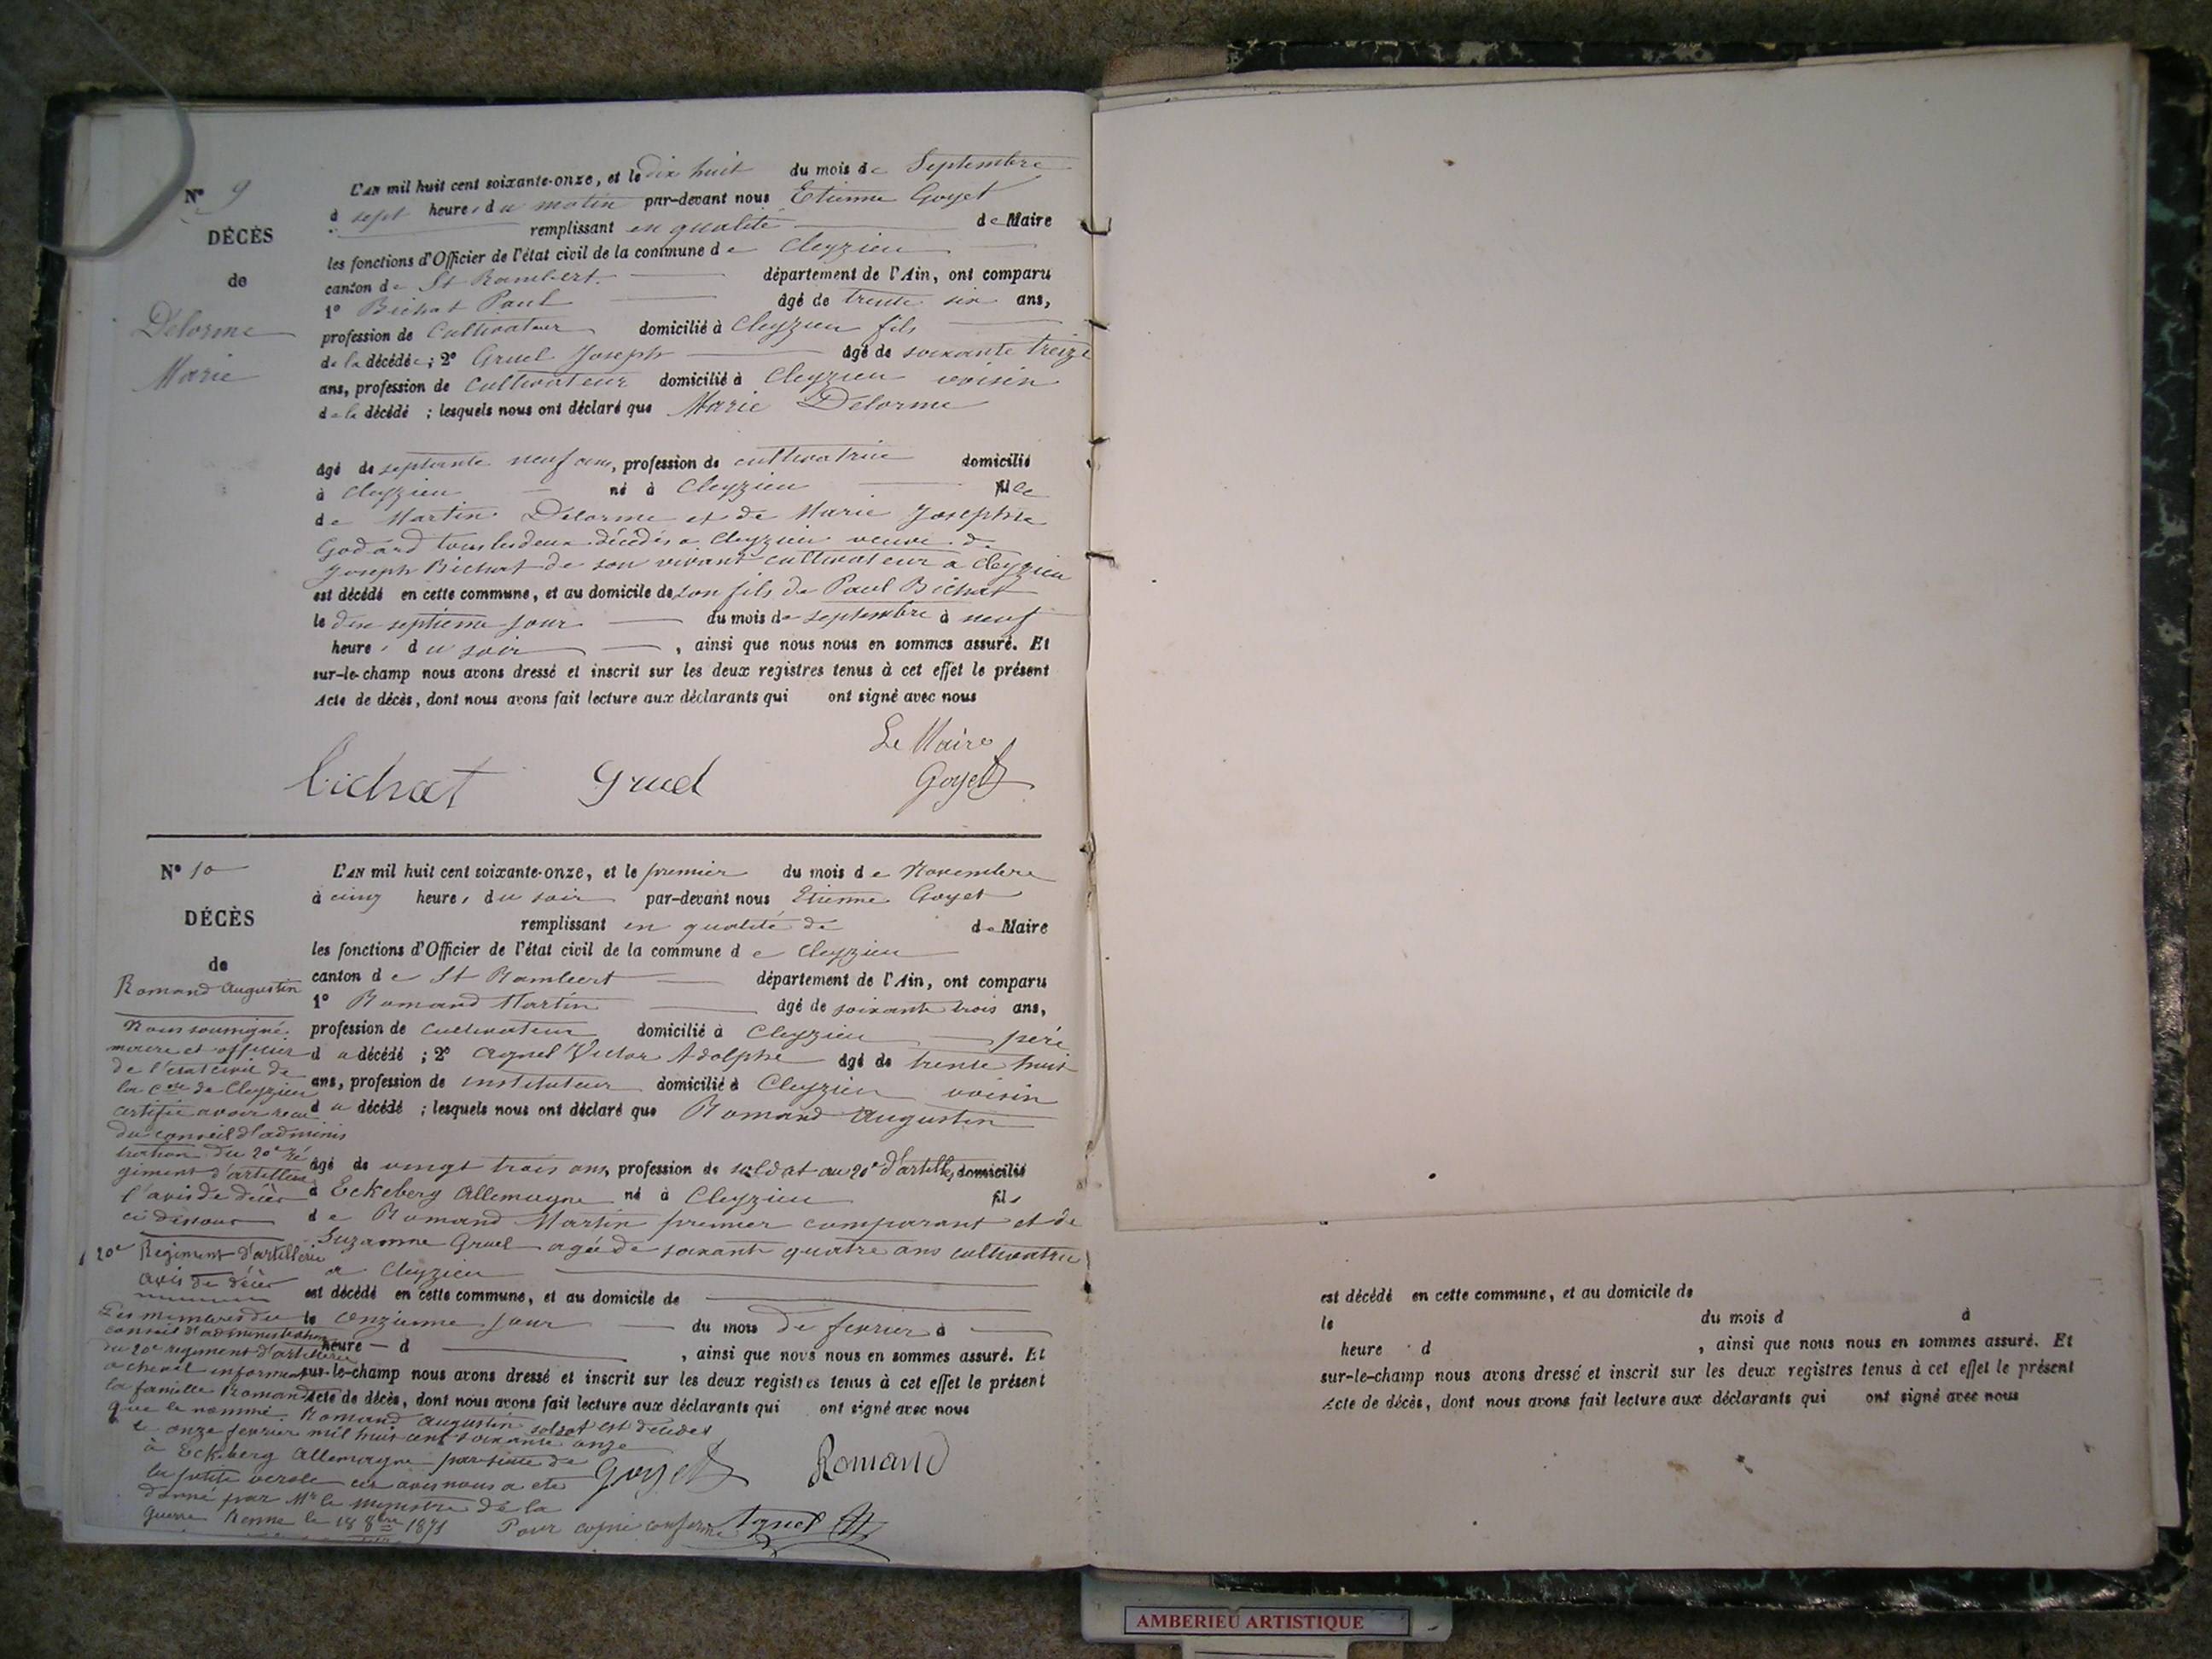 N° 9
DÉCÈS
de
Delorme
Marie
L'AN mil huit cent soixante-onze, et le dix huit du mois de Septembre
à sept heures du matin par-devant nous Etienne Goyet
remplissant en qualité de Maire
les fonctions d'Officier de l'état civil de la commune de Cleyzieu
canton de St Rambert département de l'Ain, ont comparu
1° Bichat Paul âgé de trente six ans,
profession de Cultivateur domicilié à Cleyzieu fils
de la décédée ; 2° Gruel Joseph âgé de soixante treize
ans, profession de Cultivateur domicilié à Cleyzieu voisin
de la décédé ; lesquels nous ont déclaré que Marie Delorme
âgé de septante neuf ans, profession de cultivatrice domicilié
à Cleyzieu né à Cleyzieu fille
de Martin Delorme et de Marie Josephte
Godard tous les deux décédés a Cleyzieu veuve de
Joseph Bichat de son vivant cultivateur a Cleyzieu
est décédé en cette commune, et au domicile de son fils de Paul Bichat
le dix septième jour du mois de septembre à neuf
heures du soir , ainsi que nous nous en sommes assuré. Et
sur-le-champ nous avons dressé et inscrit sur les deux registres tenus à cet effet le présent
Acte de décès, dont nous avons fait lecture aux déclarants qui ont signé avec nous
Le Maire
bichat Gruel Goyet
N° 10
DÉCÈS
de
Romand Augustin
L'AN mil huit cent soixante-onze, et le premier du mois de Novembre
à cinq heures du soir par-devant nous Etienne Goyet
remplissant en qualité de de Maire
les fonctions d'Officier de l'état civil de la commune de Cleyzieu
canton de St Rambert département de l'Ain, ont comparu
1° Romand Martin âgé de soixante trois ans,
profession de Cultivateur domicilié à Cleyzieu père
du décédé ; 2° Agnel Victor Adolphe âgé de trente huit
ans, profession de instituteur domicilié à Cleyzieu voisin
du décédé ; lesquels nous ont déclaré que Romand Augustin
âgé de vingt trois ans, profession de soldat au 20e d'artille, domicilié
à Eckeberg Allemagne né à Cleyzieu fils
de Romand Martin premier comparant et de
Suzanne Gruel agée de soixante quatre ans cultivatrice
a Cleyzieu
est décédé en cette commune, et au domicile de
le onzieme jour du mois de fevrier à
heure d , ainsi que nous nous en sommes assuré. Et
sur-le-champ nous avons dressé et inscrit sur les deux registres tenus à cet effet le présent
Acte de décès, dont nous avons fait lecture aux déclarants qui ont signé avec nous
Goyet Romand
Nous soussigné
maire et officier
de l'état civil de
la Cne de Cleyzieu
certifie avoir recu
du conseil d'adminis
tration du 20e ré
giment d'artillerie
l'avis de décès
ci dessous
20e Regiment d'artillerie
avis de décès
Les membres du
conseil d'administration
du 20e regiment d'artillerie
a cheval informent
la famille Romand
que le nommé Romand Augustin soldat est décédé
le onze fevrier mil huit cent soixante onze
à Eckeberg Allemagne par suite de
la petite verole cet avis nous a ete
donné par Mr le ministre de la
Guerre Renne le 18 8bre 1871
Pour copie conforme Agnel
est décédé en cette commune, et au domicile de
le du mois d à
heure d , ainsi que nous nous en sommes assuré. Et
sur-le-champ nous avons dressé et inscrit sur les deux registres tenus à cet effet le présent
Acte de décès, dont nous avons fait lecture aux déclarants qui ont signé avec nous
AMBERIEU ARTISTIQUE